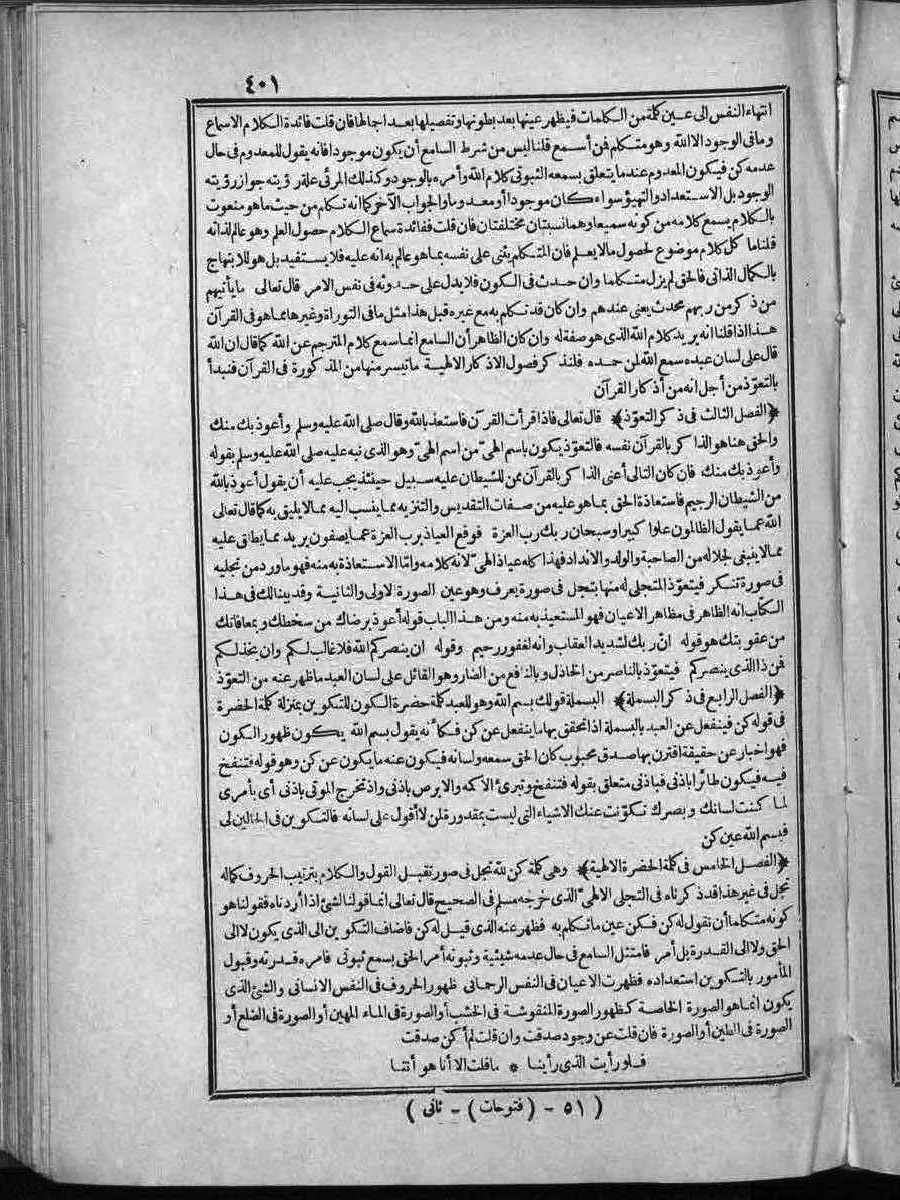 ٤٠١
انتهاء النفس الى عــين كلمة من الكلمات فيظهر عينها بعد بطونها وتفصيلها بعد اجمالها فان قلت فائدة الكلام الاسماع
وما فى الوجود الا الله وهو متكلم فن أسمع قلنا ليس من شرط السامع أن يكون موجودا فانه يقول للمعدوم فى حال
عدمه كن فيكون المعدوم عند ما يتعلق بسمعه الثبوتى كلام الله وأمره بالوجود وكذلك المرئى علة رؤيته جواز رؤيته
الوجود بل الاستعداد والتهيؤ سواء كان موجودا أو معدوما والجواب الآخر كما انه تكلم من حيث ما هو منعوت
بالكلام يسمع كلامه من كونه سميعا وهما نسبتان مختلفتان فان قلت ففائدة سماع الكلام حصول العلم وهو عالم لذاته
قلنا ما كل كلام موضوع لحصول مالايعلم فان المتكلم يثنى على نفسه بما هو عالم به انه عليه فلا يستفيد بل هو للابتهاج
بالكمال الذاتى فالحق لم يزل متكلما وان حدث فى الكون فلا يدل على حدوثه فى نفس الامر قال تعالى ما يأتيهم
من ذكر من ربهم محدث يعنى عندهم وان كان قد تكلم به مع غيره قبل هذا مثل ما فى التوراة وغيرها مما هو فى القرآن
هــذا اذا قلنا انه يريد كلام الله الذى هو صفة له وان كان الظاهر أن السامع انما سمع كلام المترجم عن الله كما قال ان الله
قال على لسان عبده سمع الله لمن حمده فلنذكر فصول الاذكار الالهية ما تيسر منها من المذكورة فى القرآن فنبدأ
بالتعوّذ من أجل انه من أذكار القرآن
﴿الفصل الثالث فى ذكر التعوّذ﴾ قال تعالى فاذا قرأت القرآن فاستعذ بالله وقال صلى الله عليه وسلم وأعوذ بك منك
والحق هنا هو الذاكر بالقرآن نفسه فالتعوّذ يكون باسم الهىّ من اسم الهىّ وهو الذى نبه عليه صلى الله عليه وسلم بقوله
وأعوذ بك منك فان كان التالى أعنى الذاكر بالقرآن ممن للشيطان عليه سبيل حينئذ يجب عليه أن يقول أعوذ بالله
من الشيطان الرجيم فاستعاذة الحق بما هو عليه من صفات التقديس والتنزيه مما ينسب اليه مما لا يليق به كما قال تعالى
الله عما يقول الظالمون علوا كبيرا وسبحان ربك رب العزة فوقع العياذ برب العزة عما يصفون يريد مما يطلق عليه
مما لا ينبغى لجلاله من الصاحبة والولد والانداد فهذا كله عياذ الهىّ لانه كلامه وامّا الاستعاذة به منه فهو ما ورد من تجليه
فى صورة تنكر فيتعوّذ المتجلى له منها بتجل فى صورة يعرف وهو عين الصورة الاولى والثانية وقد بينا لك فى هذا
الكتاب انه الظاهر فى مظاهر الاعيان فهو المستعيذ به منه ومن هــذا الباب قوله أعوذ برضاك من سخطك وبمعافاتك
من عقوبتك هو قوله انّ ربك لشديد العقاب وانه لغفور رحيم وقوله ان ينصركم الله فلا غالب لكم وان يخذلكم
فمن ذا الذى ينصركم فيتعوّذ بالناصر من الخاذل وبالنافع من الضار وهو القائل على لسان العبد ما ظهر عنه من التعوّذ
﴿الفصل الرابع فى ذكر البسملة﴾ البسملة قولك بسم الله وهو للعبد كلمة حضرة السكون للتكوين بمنزلة كلمة الحضرة
فى قوله كن فينفعل عن العبد بالبسملة اذا تحقق بها ما ينفعل عن كن فكأنه يقول بسم الله يكون ظهور الكون
فهو اخبار عن حقيقة اقترن بها صدق محبوب كان الحق سمعه ولسانه فيكون عنه ما يكون عن كن وهو قوله فتنفخ
فيه فيكون طائرا باذنى فباذنى متعلق بقوله فتنفخ وتبرئ الأكمه والابرص باذنى واذ تخرج الموتى باذنى أى بأمرى
لما كنت لسانك وبصرك تكوّنت عنك الاشياء التى ليست بمقدورة لمن لا أقول على لسانه فالتكوين فى الحالين لى
فبسم الله عين كن
﴿الفصل الخامس فى كلمة الحضرة الالهية﴾ وهى كلمة كن لله تجل فى صور تقبل القول والكلام بترتيب الحروف كماله
تجل فى غير هذا قد ذكرناه فى التجلى الالهىّ الذى خرّجه مسلم فى الصحيح قال تعالى انما قولنا لشئ اذا أردناه فقولنا هو
كونه متكلما أن نقول له كن فكن عين ما تكلم به فظهر عنه الذى قيل له كن فاضاف التكوين الى الذى يكون لا الى
الحق ولا الى القدرة بل أمر فامتثل السامع فى حال عدمه شيئيته وثبوته أمر الحق بسمع ثبوتى فامره قدرته وقبول
المأمور بالتكوين استعداده فظهرت الاعيان فى النفس الرحمانى ظهور الحروف فى النفس الانسانى والشئ الذى
يكون انما هو الصورة الخاصة كظهور الصورة المنقوشة فى الخشب أو الصورة فى الماء المهين أو الصورة فى الضلع أو
الصورة فى الطين أو الصورة فان قلت عن وجود صدقت وان قلت لم أكن صدقت
فــلو رأيت الذى رأينا * ما قلت الا أنا هو أنتا
( ٥١ - (فتوحات) - ثانى )